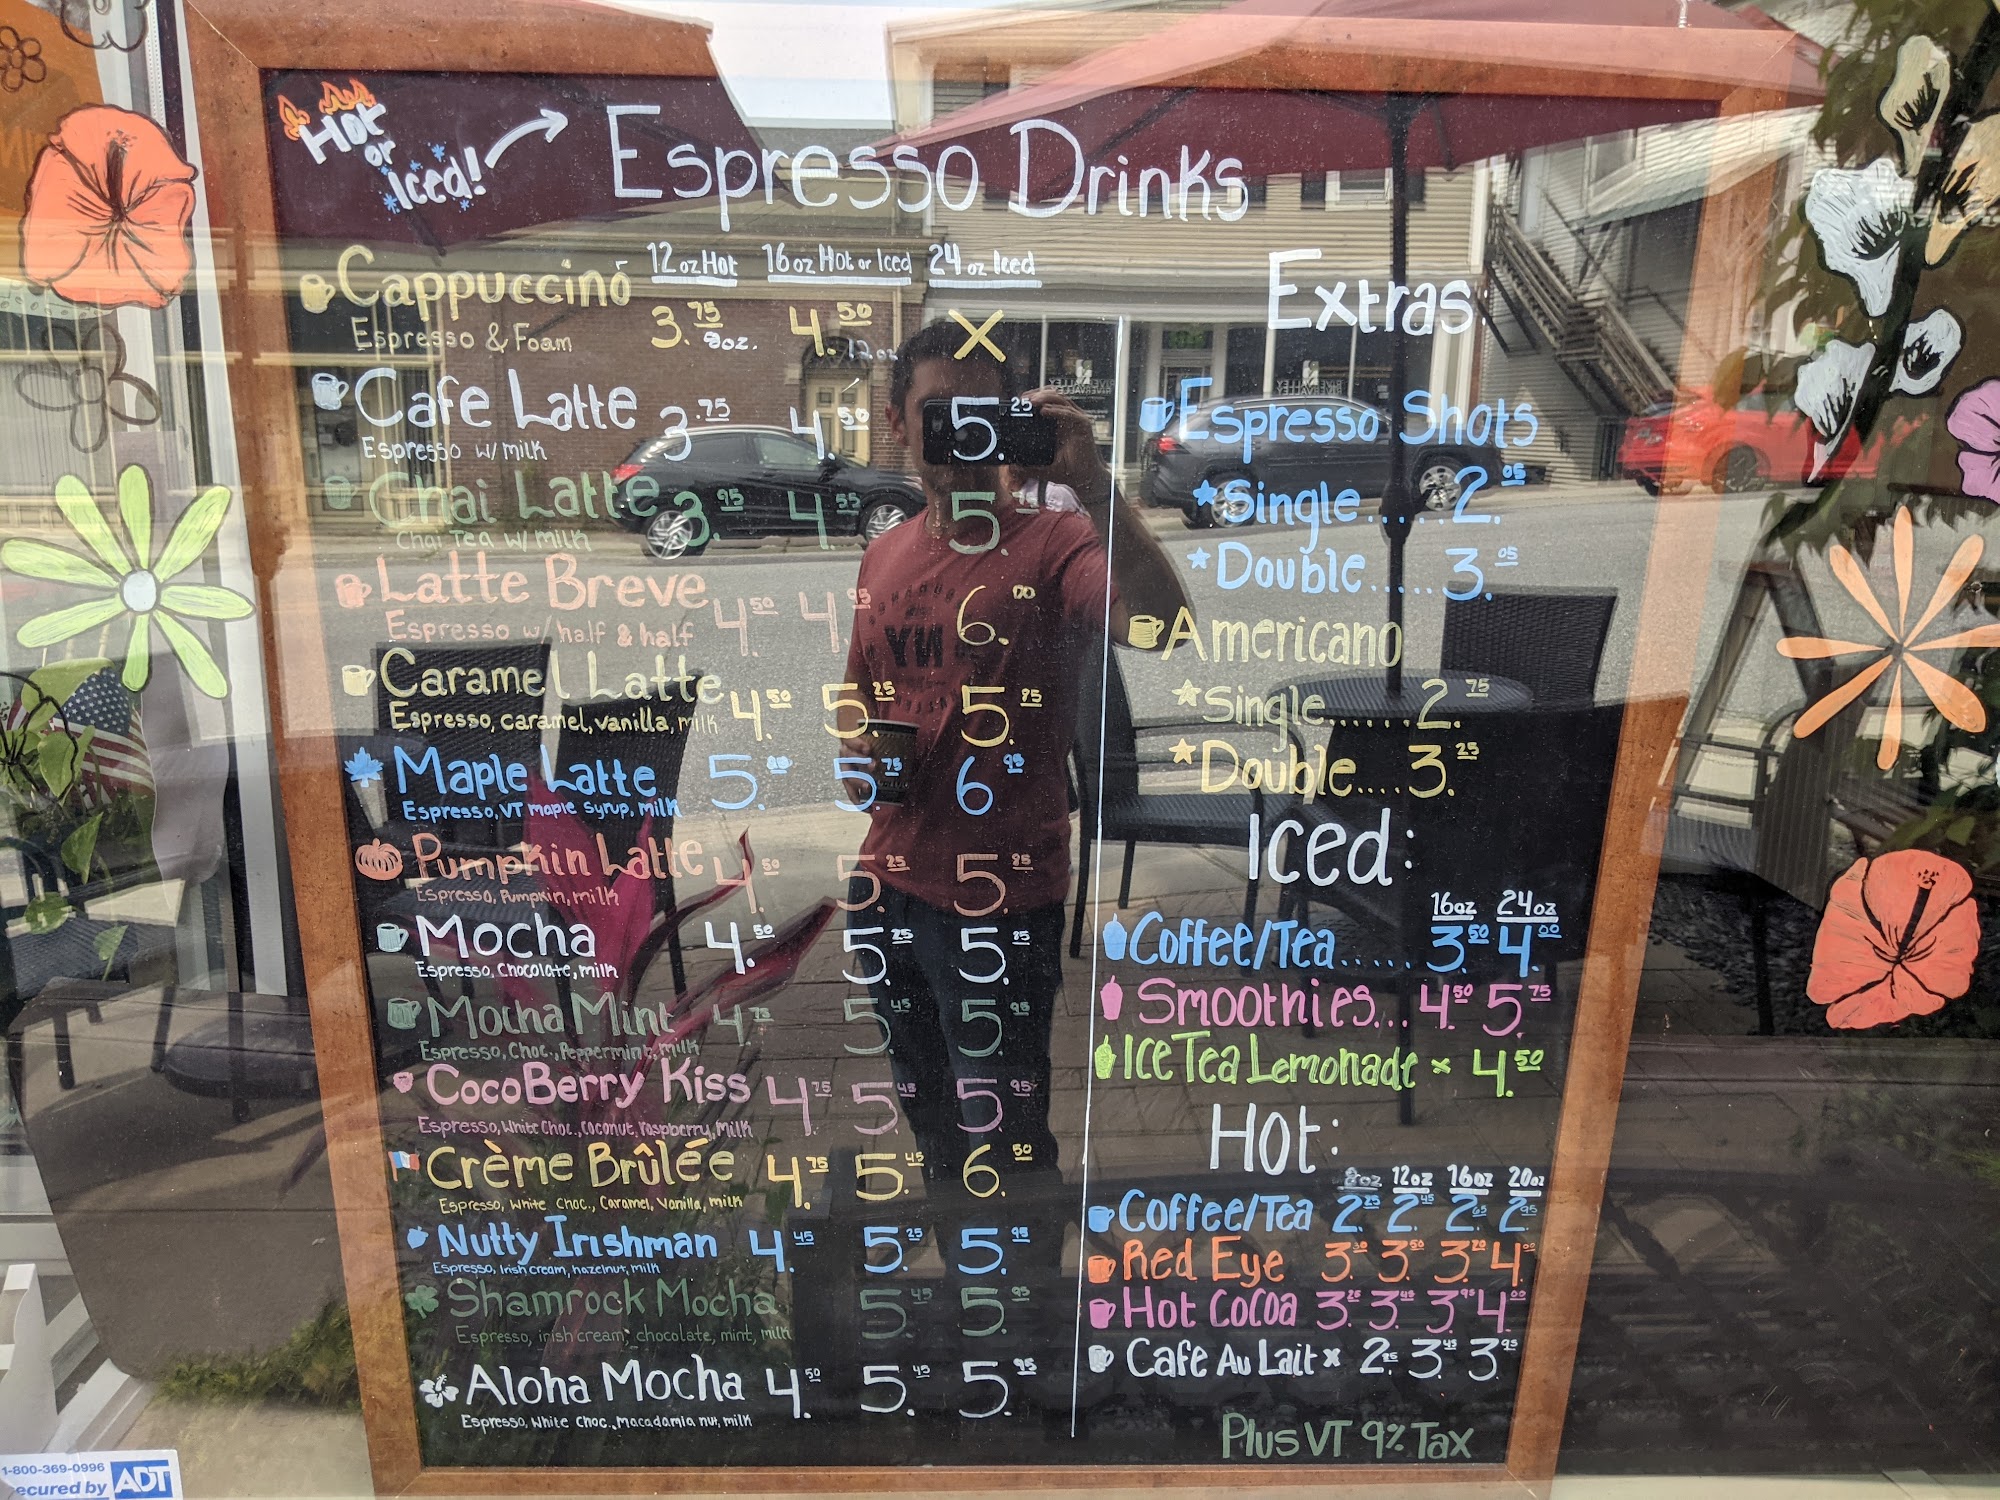 Hot
or
Iced!
Espresso Drinks
12oz Hot 16oz Hot or Iced 24oz Iced
Cappuccino 3.75 8oz. 4.50 12oz X
Espresso & Foam
Cafe Latte 3.75 4.50 5.25
Espresso w/ milk
Chai Latte 3.95 4.55 5.
Chai Tea w/ milk
Latte Breve 4.50 4.95 6.00
Espresso w/ half & half
Caramel Latte 4.50 5.25 5.95
Espresso, caramel, vanilla, milk
Maple Latte 5. 5.75 6.95
Espresso, VT maple syrup, milk
Pumpkin Latte 4.50 5.25 5.95
Espresso, Pumpkin, milk
Mocha 4.50 5.25 5.95
Espresso, Chocolate, milk
Mocha Mint 4.75 5.45 5.95
Espresso, Choc., Peppermint, milk
CocoBerry Kiss 4.75 5.45 5.95
Espresso, White Choc., Coconut, raspberry, milk
Crème Brûlée 4.75 5.45 6.50
Espresso, White Choc., Caramel, Vanilla, milk
Nutty Irishman 4.45 5.25 5.95
Espresso, Irish cream, hazelnut, milk
Shamrock Mocha 5.45 5.95
Espresso, irish cream, chocolate, mint, milk
Aloha Mocha 4.50 5.45 5.95
Espresso, White Choc., Macadamia nut, milk
Extras
Espresso Shots
Single.....2.05
Double.....3.05
Americano
Single......2.75
Double....3.25
Iced:
16oz 24oz
Coffee/Tea..... 3.50 4.00
Smoothies... 4.50 5.75
Ice Tea Lemonade x 4.50
Hot:
8oz 12oz 16oz 20oz
Coffee/Tea 2.25 2.45 2.65 2.95
Red Eye 3.30 3.50 3.70 4.00
Hot Cocoa 3.25 3.45 3.95 4.00
Cafe Au Lait x 2.95 3.45 3.95
Plus VT 9% Tax
1-800-369-0996
ecured by ADT